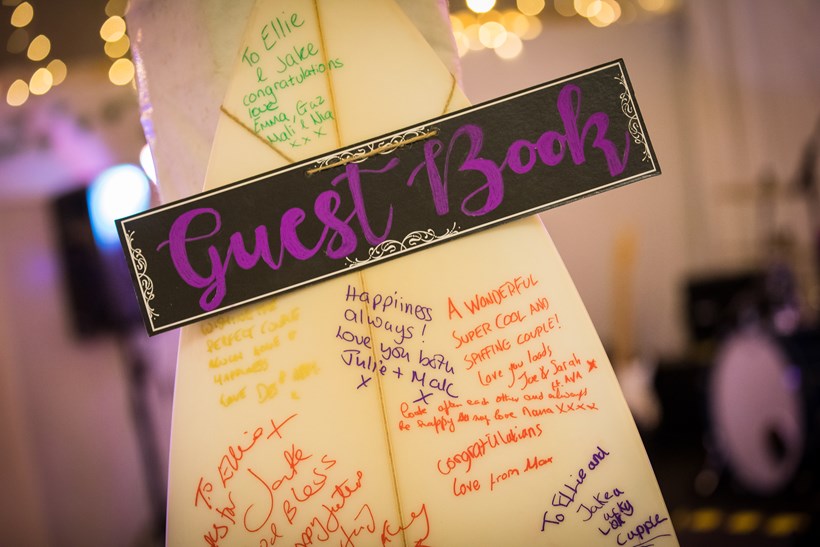 To Ellie
& Jake
congratulations
love
Emma, Gaz
Mali & Nia
x x x
Guest Book
PERFECT COUPLE
MUCH LOVE &
HAPPINESS
LOVE
Happiiness
always!
love you both
Julie + Malc
x x
A WONDERFUL
SUPER COOL AND
SPIFFING COUPLE!
Love you loads
Joe & Sarah x
& AVA
look after each other and always
be happy all my love Nana xxxx
congratulations
love from Max
To Ellie +
Jake
Bless
To Ellie and
Jake a
Cupple